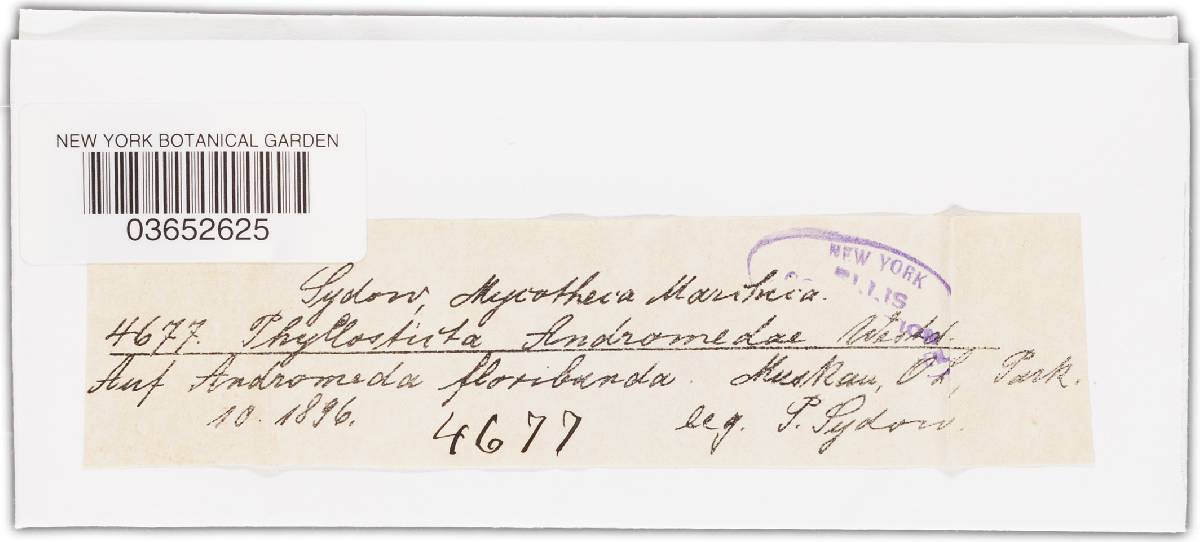 NEW YORK BOTANICAL GARDEN
03652625
NEW YORK
ELLIS
Sydow, Mycotheca Marchica.
4677. Phyllosticta Andromedae Westd.
Auf Andromeda floribunda. Muskau, O.L., Park.
10. 1896. leg. P. Sydow.
4677